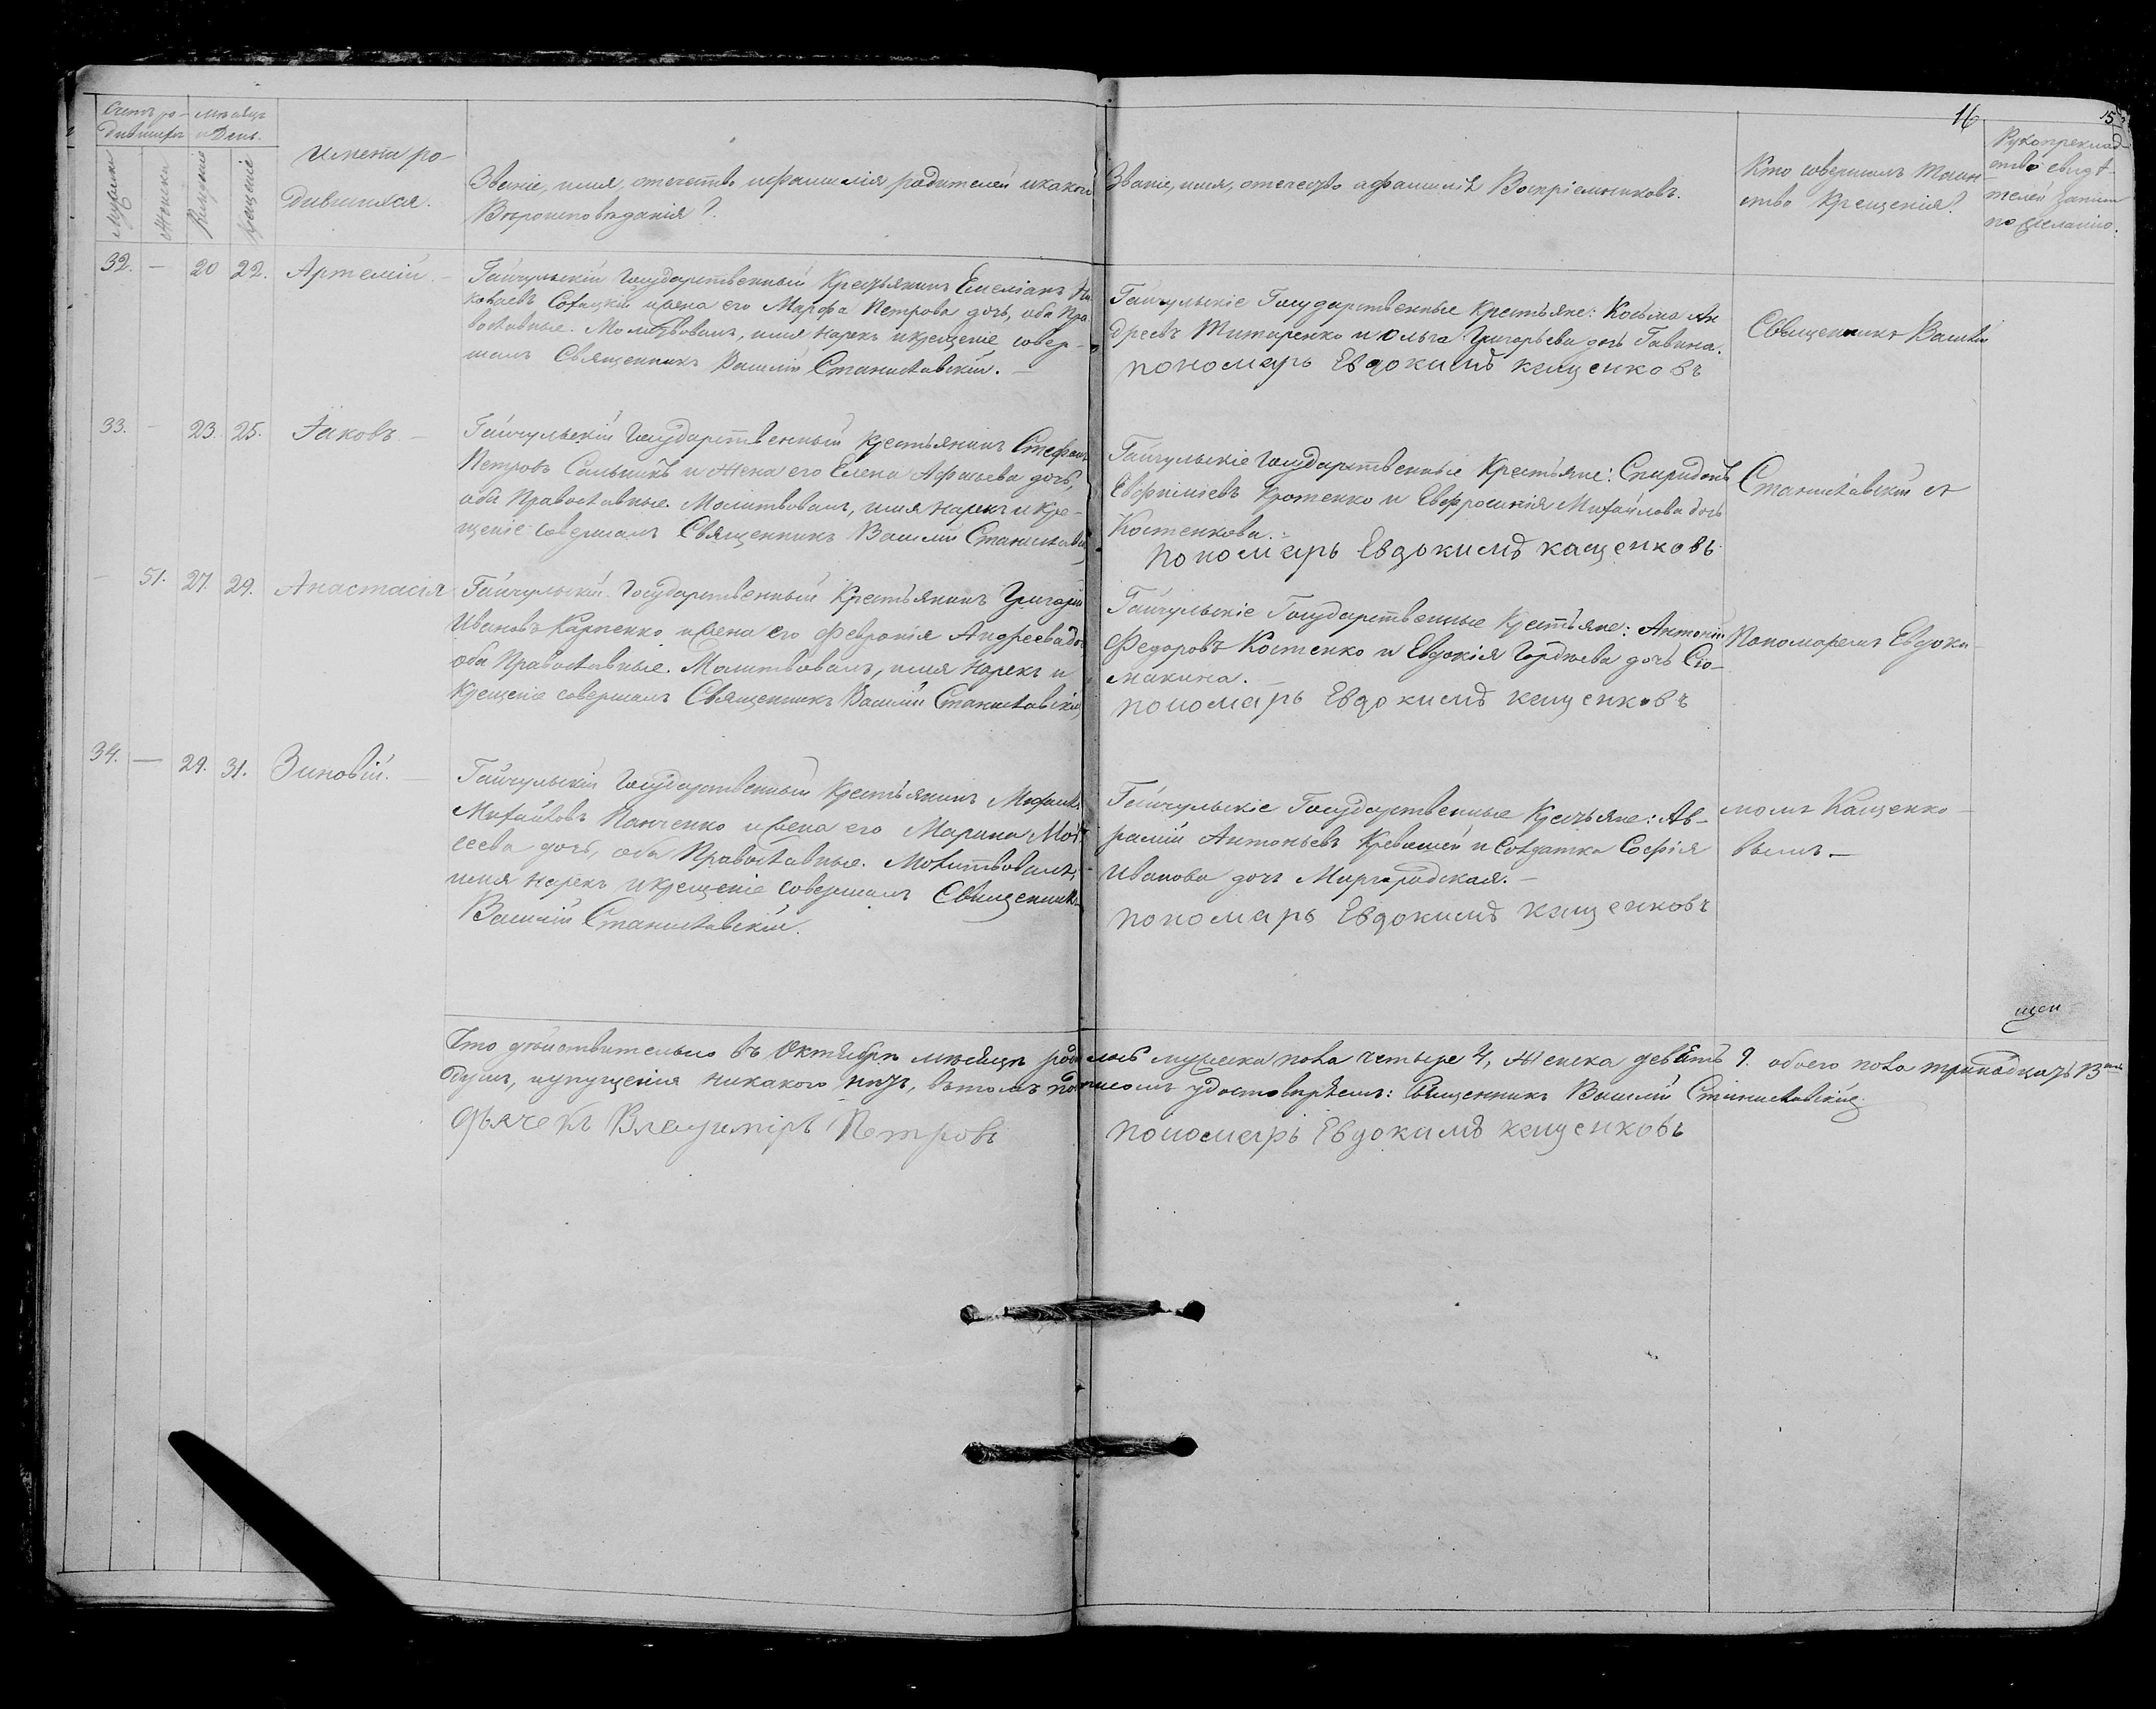 16
15
Счетъ ро-
дившихъ
Мѣсяцъ
и День.
Мужска
Женска
Рожденіе
Крещеніе
Имена ро-
дившихся.
Званіе, имя, отечество и фамилія родителей и какого
Вѣроисповѣданія?
Званіе, имя, отечество и фамилія Воспріемниковъ.
Кто совершалъ таин-
ство Крещенія?
Рукоприклад-
ство свидѣ-
телей записи
по желанію.
32. — 20 22. Артемій.
Гайчульскій Государственный Крестьянинъ Емеліанъ Ни-
колаевъ Собацкій и жена его Марфа Петрова дочь, оба Пра-
вославные. Молитвовалъ, имя нарекъ и крещеніе совер-
шалъ Священникъ Василій Станиславскій. —
Гайчульскіе Государственные Крестьяне: Косьма Ан-
дреевъ Титаренко и Ольга Григорьева дочь Гавина.
пономарь Евдокимъ кащенковъ
Священникъ Василій
33. — 23. 25. Іаковъ —
Гайчульскій Государственный Крестьянинъ Стефанъ
Петровъ Сальникъ и жена его Елена Афаньева дочь,
оба Православные. Молитвовалъ, имя нарекъ и кре-
щеніе совершалъ Священникъ Василій Станиславскій
Гайчульскіе Государственные Крестьяне: Спиридонъ
Евфиміевъ Кротенко и Евфросинія Михайлова дочь
Костенкова.
пономарь Евдокимъ кащенковъ
Станиславскій съ
— 51. 27. 29. Анастасія
Гайчульскій Государственный Крестьянинъ Григорій
Ивановъ Карпенко и жена его Февронія Андреева до
оба Православные. Молитвовалъ, имя нарекъ и
Крещеніе совершалъ Священникъ Василій Станиславскій
Гайчульскіе Государственные Крестьяне: Антоній
Федоровъ Костенко и Евдокія Гордѣева дочь Сło-
макина.
пономарь Евдокимъ кащенковъ
Пономаремъ Евдоки-
34. — 29. 31. Зиновій. —
Гайчульскій Государственный Крестьянинъ
Михайловъ Панченко и жена его Марина Мои-
сеева дочь, оба Православные. Молитвовалъ,
имя нарекъ и крещеніе совершалъ Священникъ
Василій Станиславскій.
Гайчульскіе Государственные Крестьяне: Ав-
рамій Антоньевъ и Солдатка Софія
Иванова дочь Миргородская. —
пономарь Евдокимъ кащенковъ
момъ Кащенко-
вымъ —
Что дѣйствительно въ Октябрѣ мѣсяцѣ родилось мужеска пола четыре 4, женска девять 9. обоего пола тринадцать 13
душъ, и упущенія никакого нѣтъ, въ томъ подписомъ удостовѣряемъ: Священникъ Василій Станиславскій
Дьячекъ Владиміръ Петровъ
пономарь Евдокимъ кащенковъ